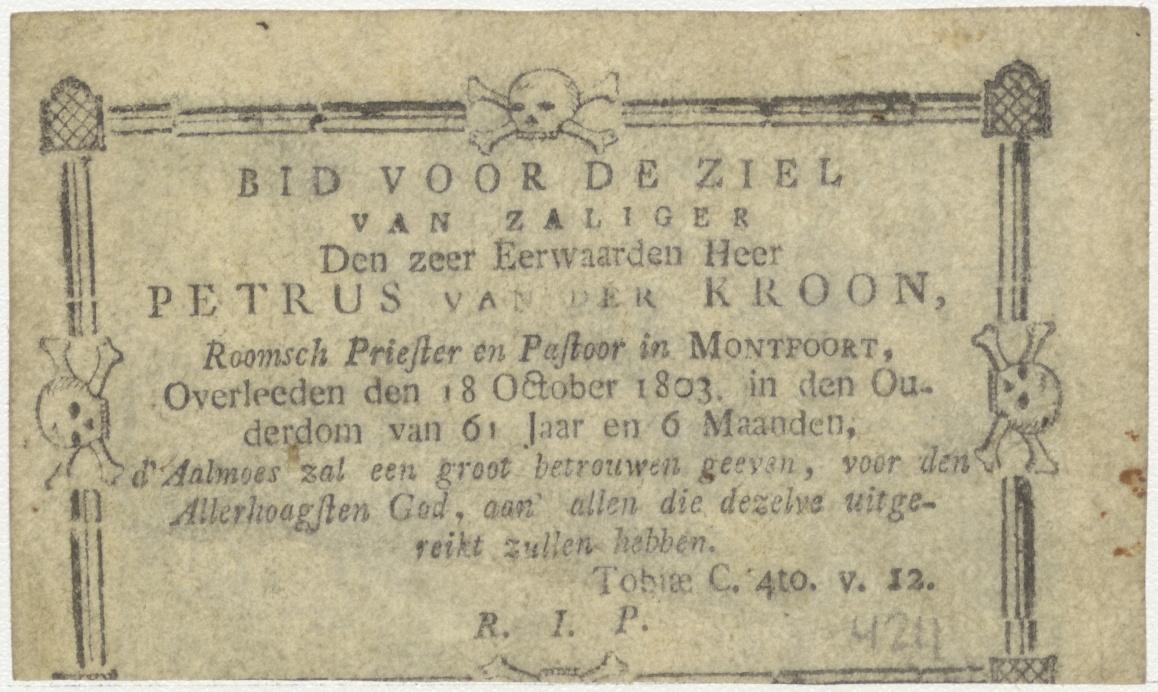 BID VOOR DE ZIEL
VAN ZALIGER
Den zeer Eerwaarden Heer
PETRUS VAN DER KROON,
Roomsch Prieſter en Paſtoor in MONTFOORT,
Overleeden den 18 October 1803. in den Ou-
derdom van 61 Jaar en 6 Maanden,
d' Aalmoes zal een groot betrouwen geeven, voor den
Allerhoogſten God, aan allen die dezelve uitge-
reikt zullen hebben.
Tobiæ C. 4to. v. 12.
R. I. P.
424